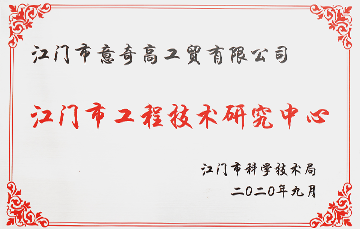 江门市意奇高工贸有限公司
江门市工程技术研究中心
江门市科学技术局
二〇二〇年九月